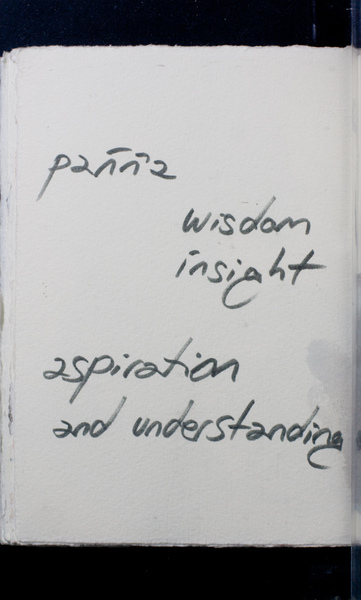 pañña
wisdom
insight
aspiration
and understanding